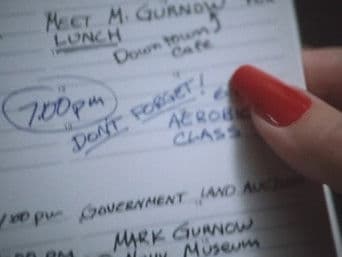 MEET M. GURNOW FOR
LUNCH
Downtown
Cafe
7:00 pm
DON'T FORGET!
AEROBIC
CLASS
:00 pm GOVERNMENT LAND
:00 PM MARK GURNOW
Museum